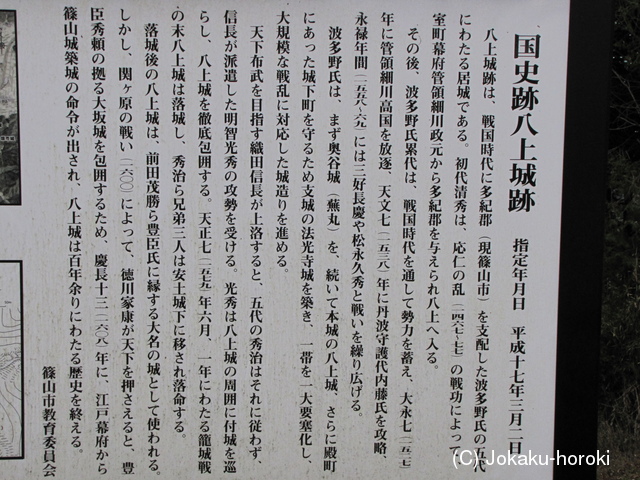 国史跡八上城跡
指定年月日　平成十七年三月二日
八上城跡は、戦国時代に多紀郡（現篠山市）を支配した波多野氏の五代
にわたる居城である。初代清秀は、応仁の乱（一四六七〜七七）の戦功によって
室町幕府管領細川政元から多紀郡を与えられ八上へ入る。
その後、波多野氏累代は、戦国時代を通して勢力を蓄え、大永七（一五二七）
年に管領細川高国を放逐、天文七（一五三八）年に丹波守護代内藤氏を攻略、
永禄年間（一五五八〜六九）には三好長慶や松永久秀と戦いを繰り広げる。
波多野氏は、まず奥谷城（蕪丸）を、続いて本城の八上城、さらに殿町
にあった城下町を守るため支城の法光寺城を築き、一帯を一大要塞化し、
大規模な戦乱に対応した城造りを進める。
天下布武を目指す織田信長が上洛すると、五代の秀治はそれに従わず、
信長が派遣した明智光秀の攻勢を受ける。光秀は八上城の周囲に付城を巡
らし、八上城を徹底包囲する。天正七（一五七九）年六月、一年にわたる籠城戦
の末八上城は落城し、秀治ら兄弟三人は安土城下に移され落命する。
落城後の八上城は、前田茂勝ら豊臣氏に縁する大名の城として使われる。
しかし、関ヶ原の戦い（一六〇〇）によって、徳川家康が天下を押さえると、豊
臣秀頼の拠る大坂城を包囲するため、慶長十三（一六〇八）年に、江戸幕府から
篠山城築城の命令が出され、八上城は百年余りにわたる歴史を終える。
篠山市教育委員会
(C)Jokaku-horoki